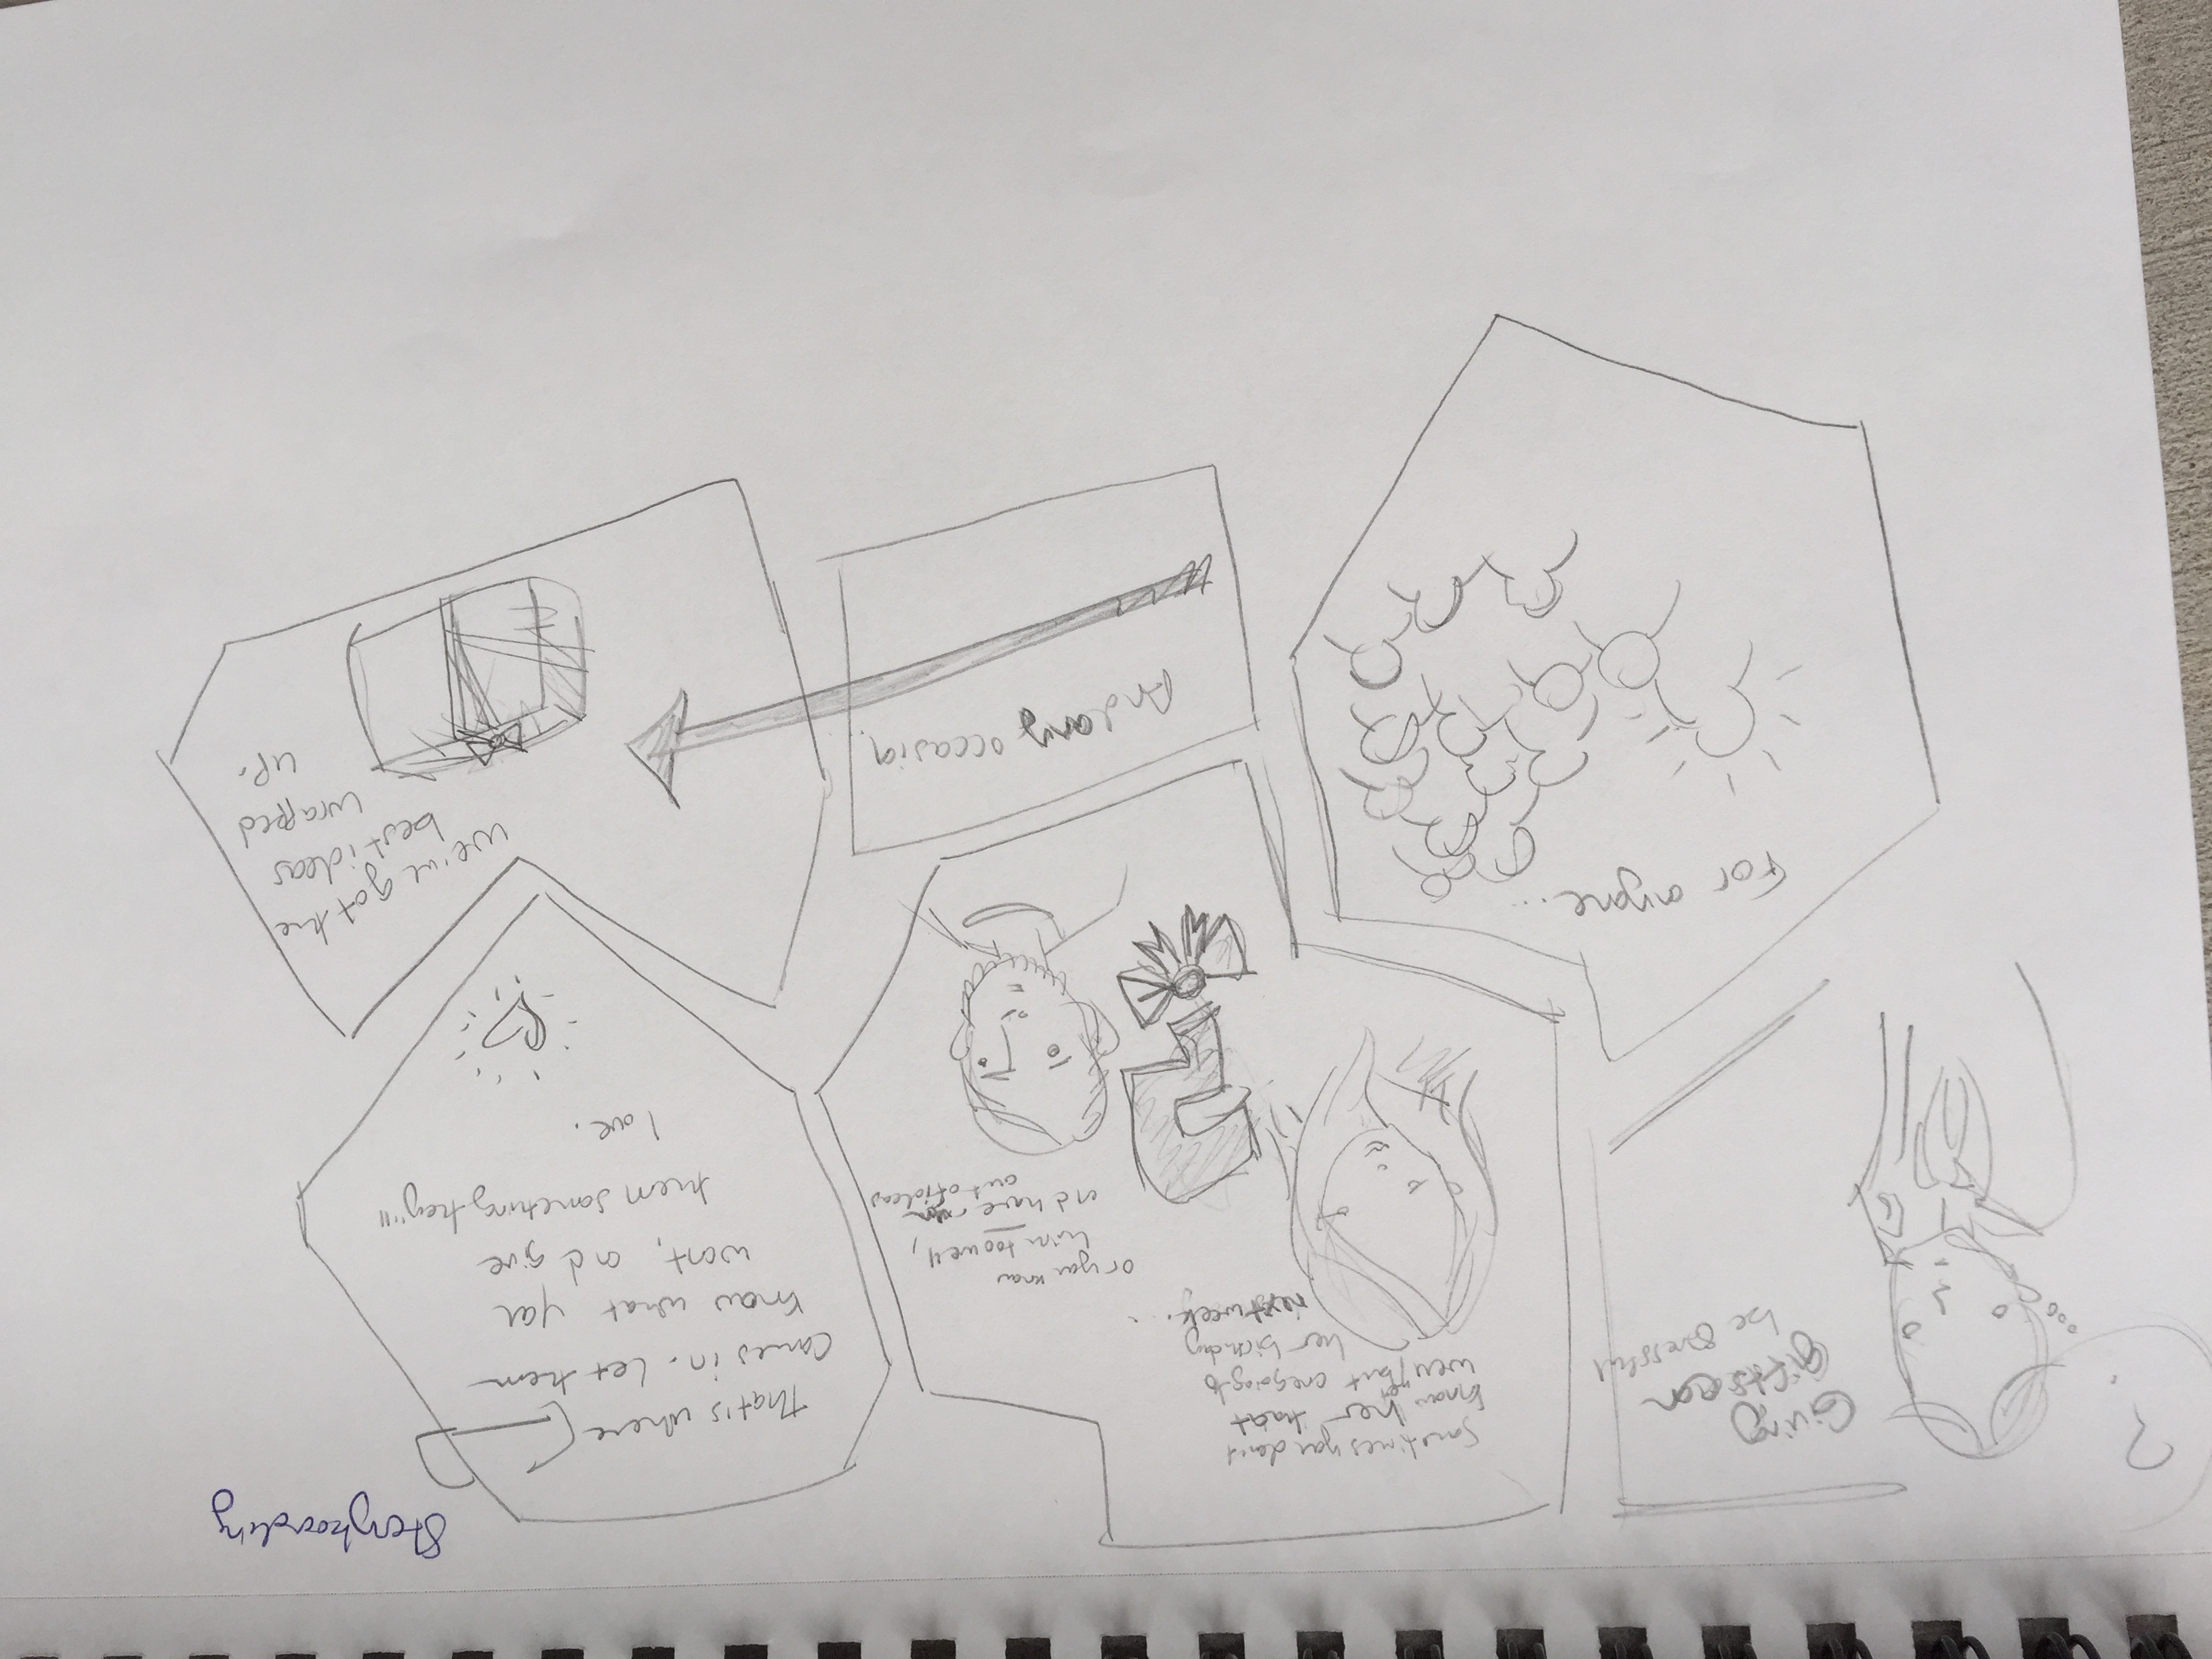 Storyboarding
?
Giving
gifts can
be stressful
Sometimes you don't
know her that
well yet but are going to
her birthday
next week...
or you know
him too well,
and have run
out of ideas
That's where [
comes in. Let them
know what you
want, and give
them something they'll
love.
For anyone...
And any occasion.
We've got the
best ideas
wrapped
up.